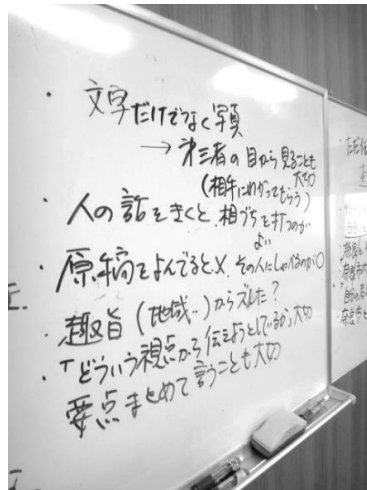 ・文字だけでなく写真
→ 第三者の目から見ることも
大切
(相手にわかってもらう)
・人の話をきくと、相づちを打つのが
よい
・原稿をよんでると×、その人にしゃべるのが○
・趣旨(地域..)からズレた?
・「どういう視点から伝えようとしているか」大切
・要点まとめて言うことも大切